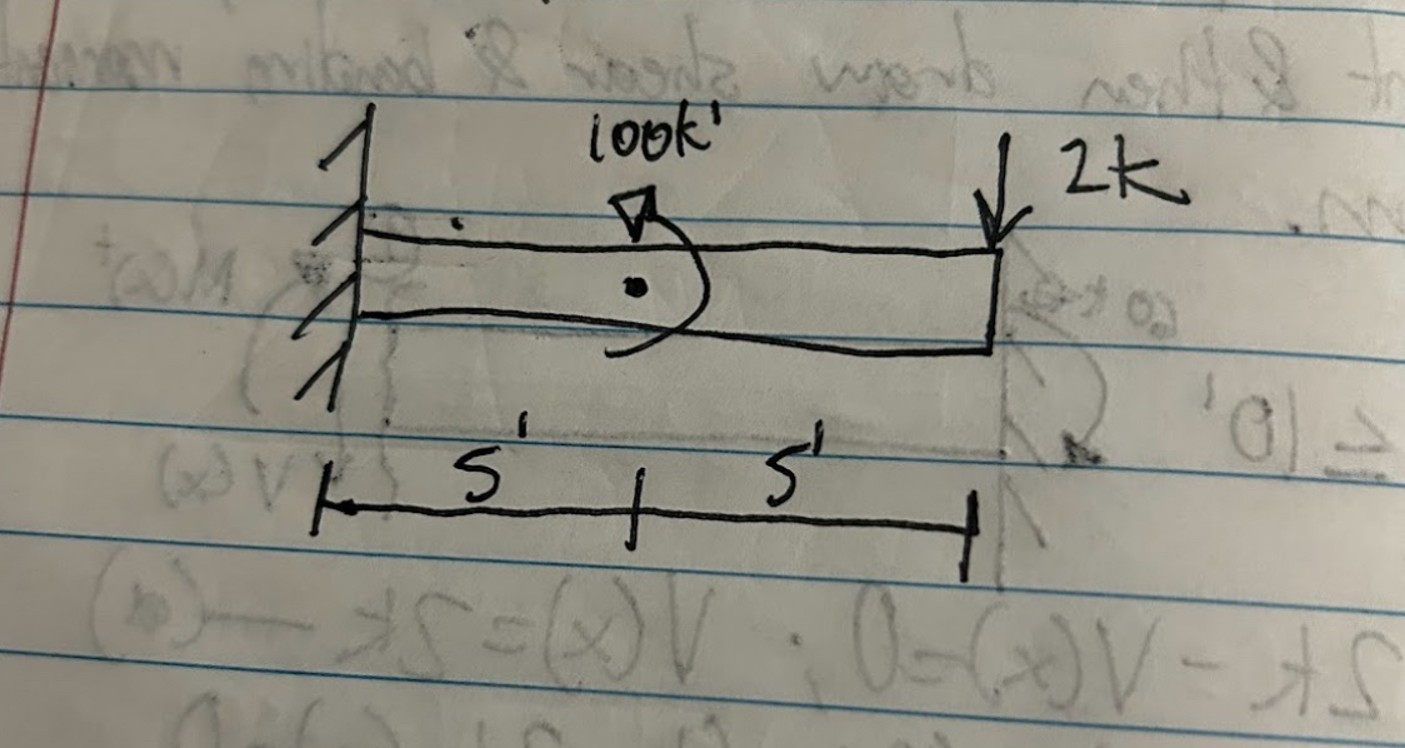 100k'
2k
5' 5'